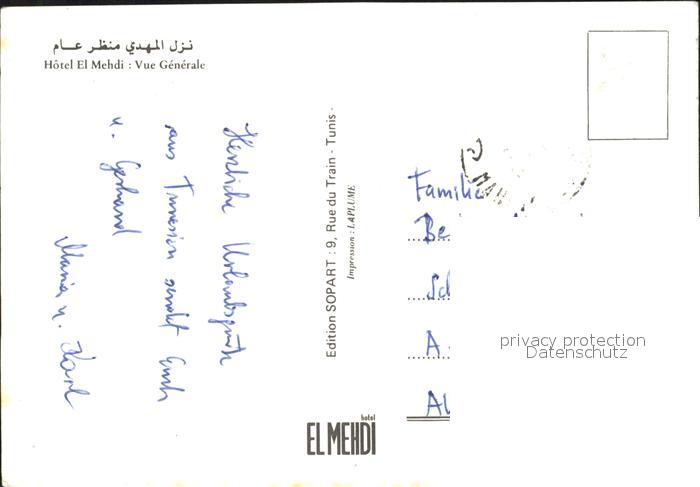 نزل المهدي منظر عام
Hôtel El Mehdi : Vue Générale
Herzliche Urlaubsgrüße
aus Tunesien sendet Euch
u. Gerhard
Maria u. Karl
Edition SOPART : 9, Rue du Train - Tunis -
Impression : LAPLUME
hotel
EL MEHDI
Familie
Be
Sch
A.
Al
privacy protection
Datenschutz